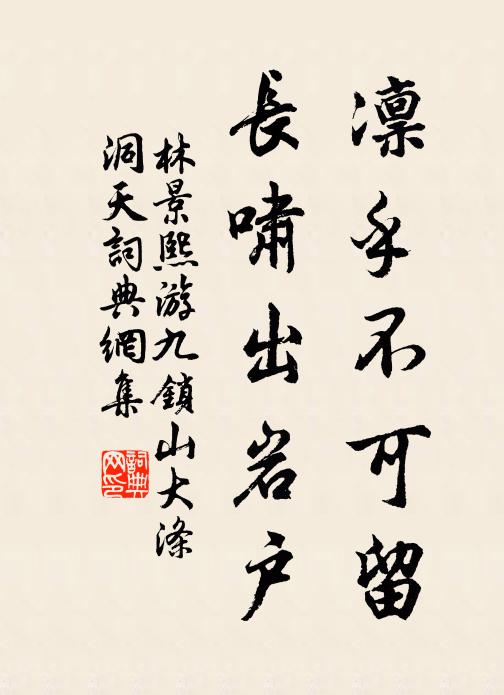 凛乎不可留
長嘯出岩户
林景熙游九鎖山大滌
洞天詞典網集
詞典网印